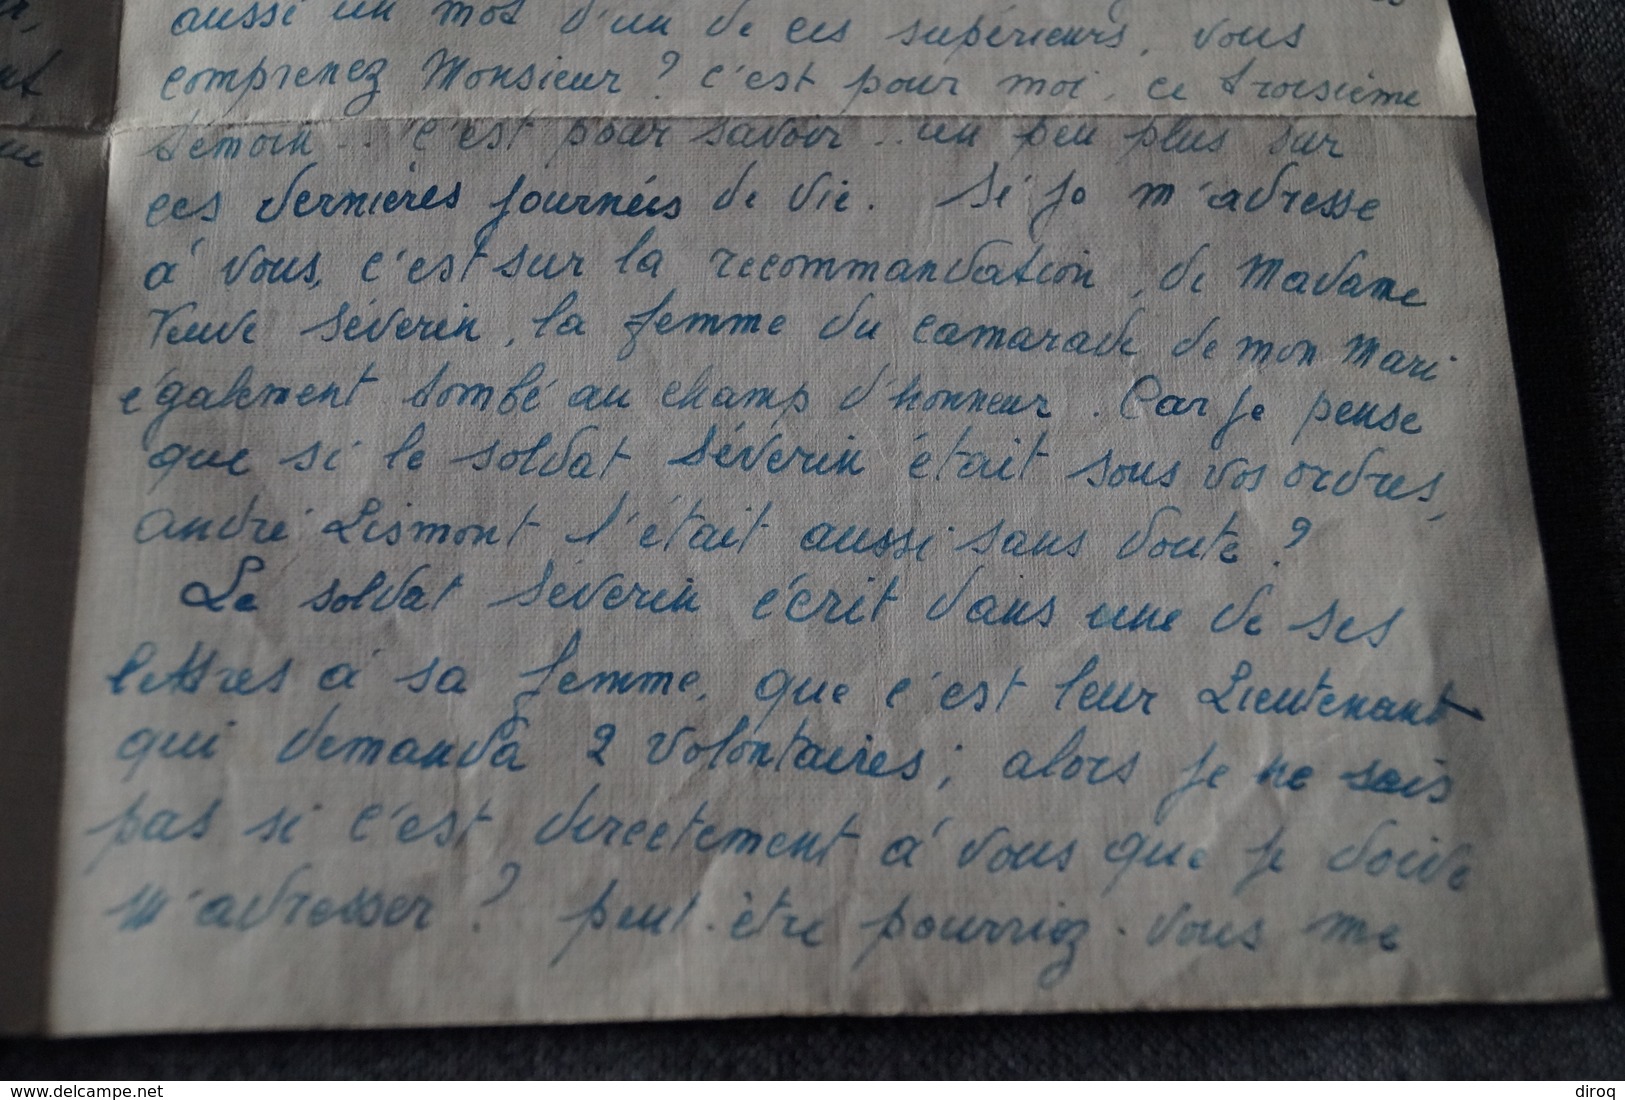 aussi un mot d'un de ces supérieurs, vous
comprenez Monsieur ? c'est pour moi, ce troisième
témoin .. c'est pour savoir .. un peu plus sur
ces dernières journées de vie. Si je m'adresse
à vous, c'est sur la recommandation, de Madame
Veuve Séverin, la femme du camarade de mon Mari
également tombé au champ d'honneur. Car je pense
que si le soldat Séverin était sous vos ordres,
André Lismont l'était aussi sans doute ?
Le soldat Séverin écrit dans une de ses
lettres à sa femme, que c'est leur Lieutenant
qui demanda 2 volontaires; alors je ne sais
pas si c'est directement à vous que je doive
m'adresser ? peut-être pourriez-vous me
diroq